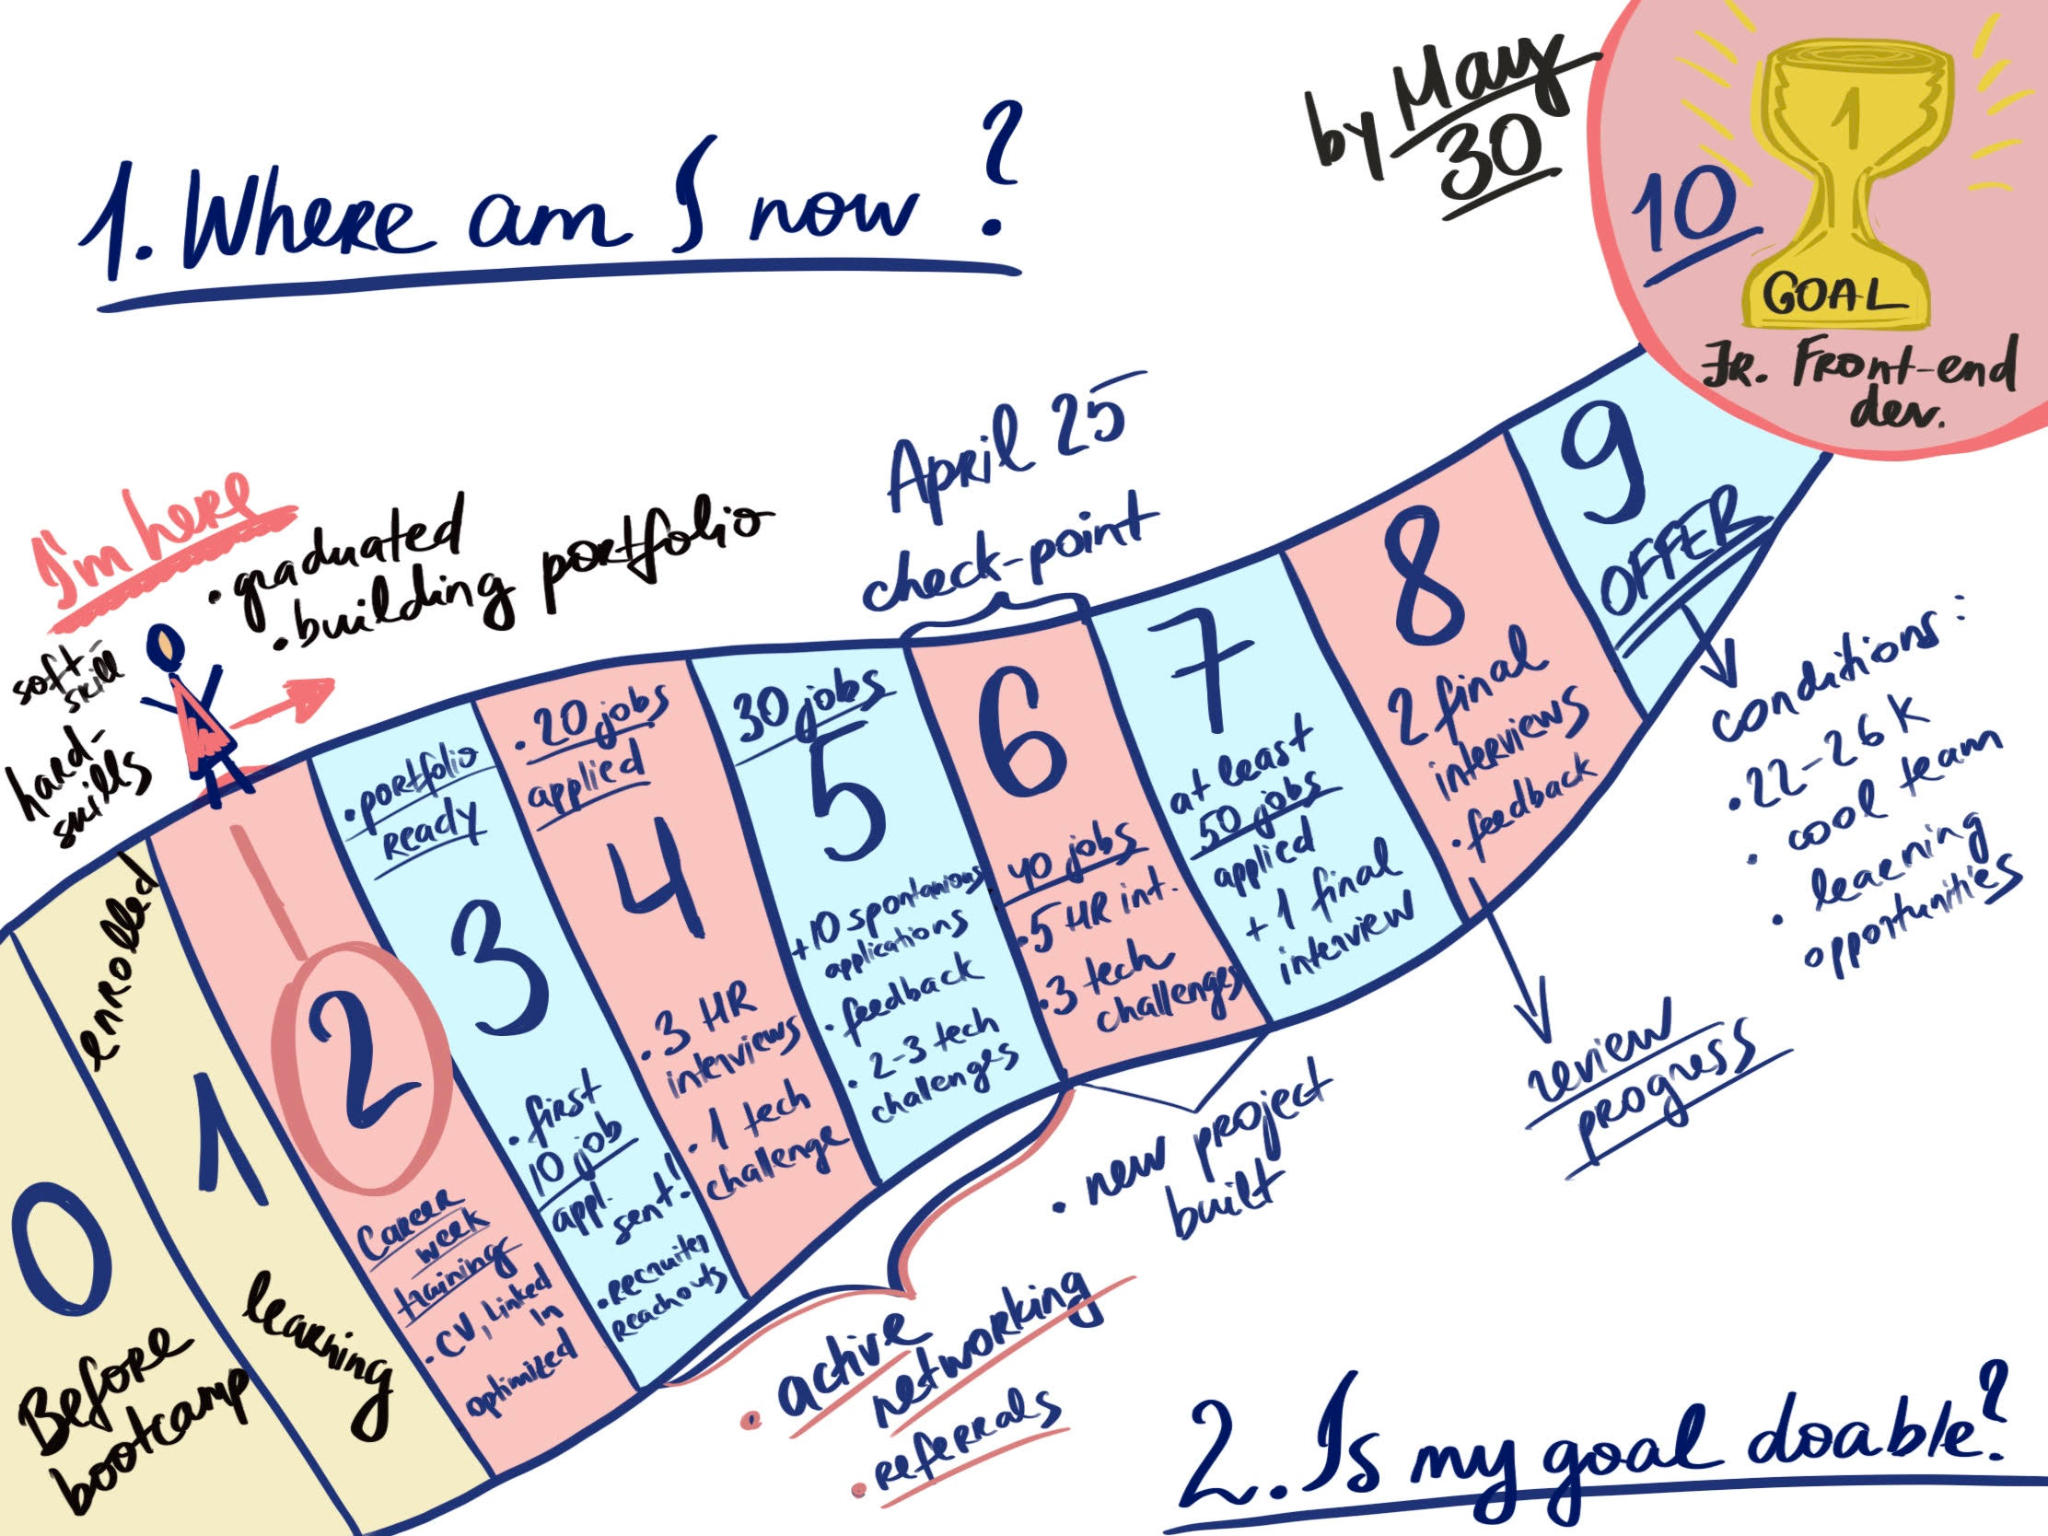 1. Where am I now?
by May
30
10
1
GOAL
Jr. Front-end
dev.
I'm here
• graduated
• building portfolio
soft-
skill
hard-
skills
April 25
check-point
0
Before
bootcamp
enrolled
1
learning
2
Career
week
training
• CV, Linked
In
optimized
• portfolio
ready
3
• first
10 job
appl.
sent!
• recruiter
reachouts
• 20 jobs
applied
4
• 3 HR
interviews
• 1 tech
challenge
30 jobs
5
+10 spontanious
applications
• feedback
• 2-3 tech
challenges
6
40 jobs
• 5 HR int.
• 3 tech
challenges
7
at least
50 jobs
applied
+ 1 final
interview
8
2 final
interviews
• feedback
9
OFFER
conditions:
• 22-26 K
• cool team
• learning
opportunities
review
progress
• new project
built
• active
networking
• referrals
2. Is my goal doable?